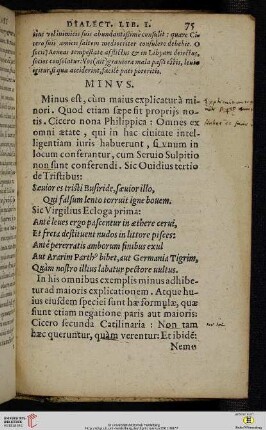 DIALECT. LIB. I. 75
suis vel inimicis suis abundantissimè consulit: quare Cicero
suis amicis saltem mediocriter consulere debebit. O
socij (Aeneas tempestate afflictus & in Libyam deiectus,
socios consolatur: Nos (aut) grauiora mala passi estis, leuio
MINVS.
Minus est, cùm maius explicatur à mi-
nori. Quod etiam sæpe fit proprijs no-
tis. Cicero nona Philippica: Omnes ex
omni ætate, qui in hac ciuitate intel-
ligentiam iuris habuerunt, si vnum in
locum conferantur, cum Seruio Sulpitio
non sunt conferendi. Sic Ouidius tertio
de Tristibus:
Sæuior es tristi Busiride, sæuior illo,
Qui falsum lento torruit igne bouem.
Sic Virgilius Ecloga prima:
Antè leues ergo pascentur in æthere cerui,
Et freta destituent nudos in littore pisces:
Antè pererratis amborum finibus exul
Aut Ararim Parthus bibet, aut Germania Tigrim,
Quàm nostro illius labatur pectore vultus.
In his omnibus exemplis minus adhibe-
tur ad maioris explicationem. Atque hu-
ius eiusdem speciei sunt hæ formulæ, quæ
fiunt etiam negatione paris aut maioris:
Cicero secunda Catilinaria: Non tam
hæc queruntur, quàm verentur: Et ibidē:
Nemo